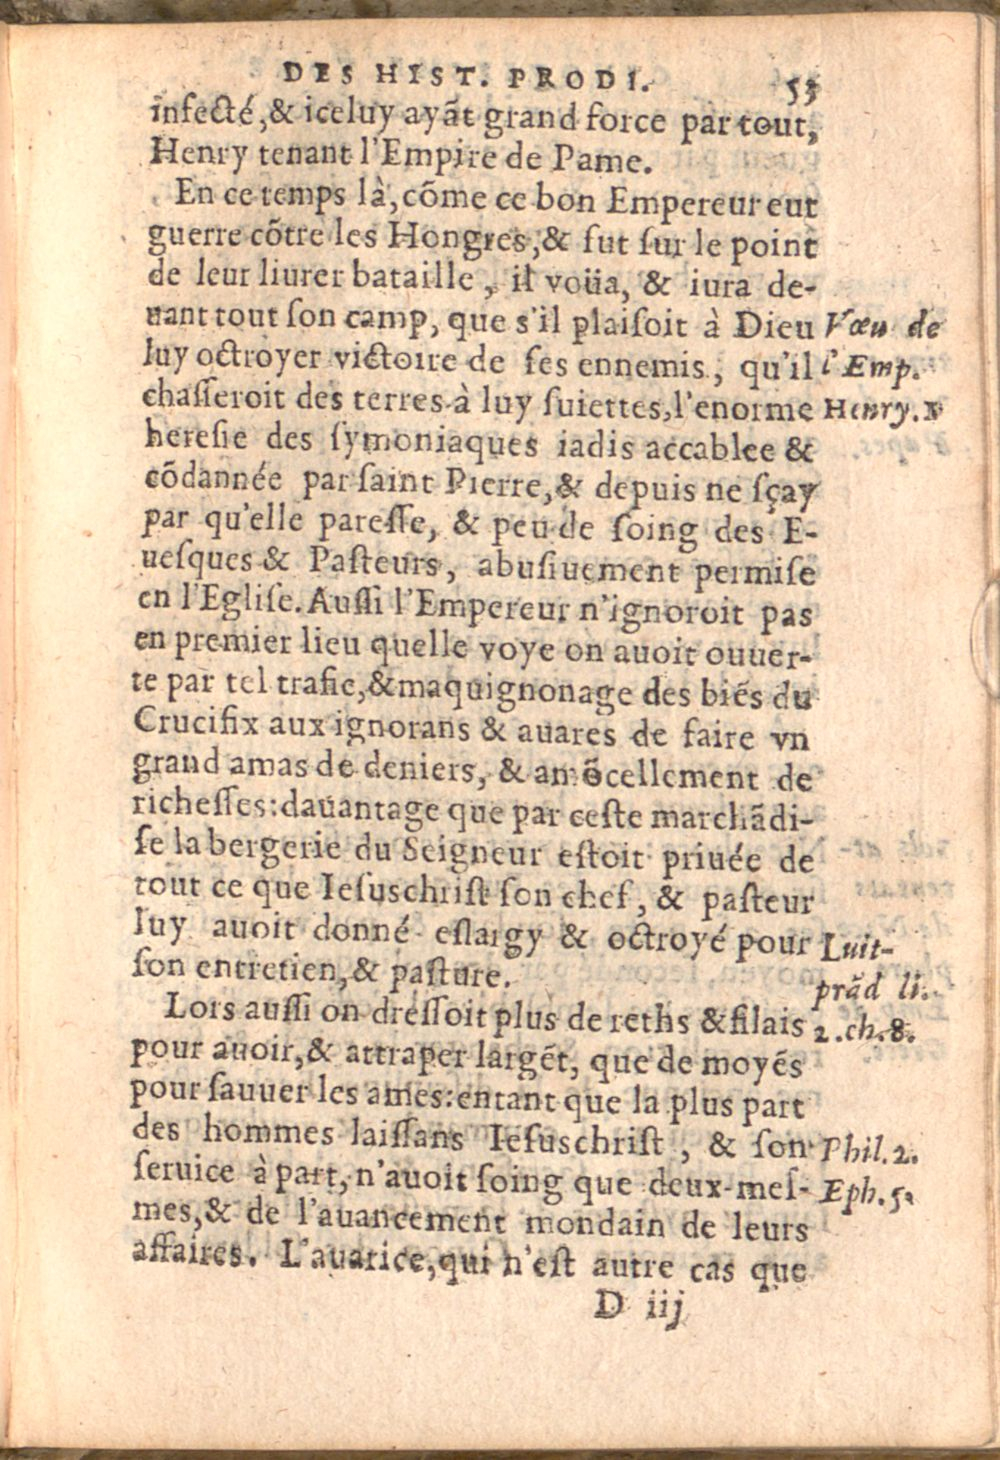 DES HIST. PRODI. 53
infecté,& iceluy ayãt grand force par tout,
Henry tenant l'Empire de Pame.
En ce temps là, cõme ce bon Empereur eut
guerre cõtre les Hongres,& fut sur le point
de leur liurer bataille, il voüa, & iura de-
uant tout son camp, que s'il plaisoit à Dieu
luy octroyer victoire de ses ennemis, qu'il
chasseroit des terres à luy suiettes, l'enorme
heresie des symoniaques iadis accablee &
cõdannée par saint Pierre,& depuis ne sçay
par qu'elle paresse, & peu de soing des E-
uesques & Pasteurs, abusiuement permise
en l'Eglise. Aussi l'Empereur n'ignoroit pas
en premier lieu quelle voye on auoit ouuer-
te par tel trafic,& maquignonage des biẽs du
Crucifix aux ignorans & auares de faire vn
grand amas de deniers, & amõcellement de
richesses: dauantage que par ceste marchãdi-
se la bergerie du Seigneur estoit priuée de
tout ce que Iesuschrist son chef, & pasteur
luy auoit donné eslargy & octroyé pour
son entretien,& pasture.
Lors aussi on dressoit plus de reths & filais
pour auoir,& attraper largẽt, que de moyẽs
pour sauuer les ames: entant que la plus part
des hommes laissans Iesuschrist, & son
seruice à part, n'auoit soing que deux-mes-
mes,& de l'auancement mondain de leurs
affaires. L'auarice, qui n'est autre cas que
D iij
Vœu de
l'Emp.
Henry.
Luit-
prãd li.
2.ch.8.
Phil.2.
Eph.5.